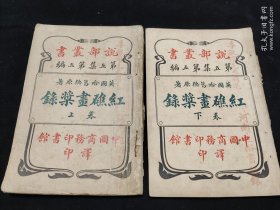 說部叢書
第五集第五編
英國哈葛德原著
紅礁畫槳錄
卷上
中國商務印書館
譯印
說部叢書
第五集第五編
英國哈葛德原著
紅礁畫槳錄
卷下
中國商務印書館
譯印